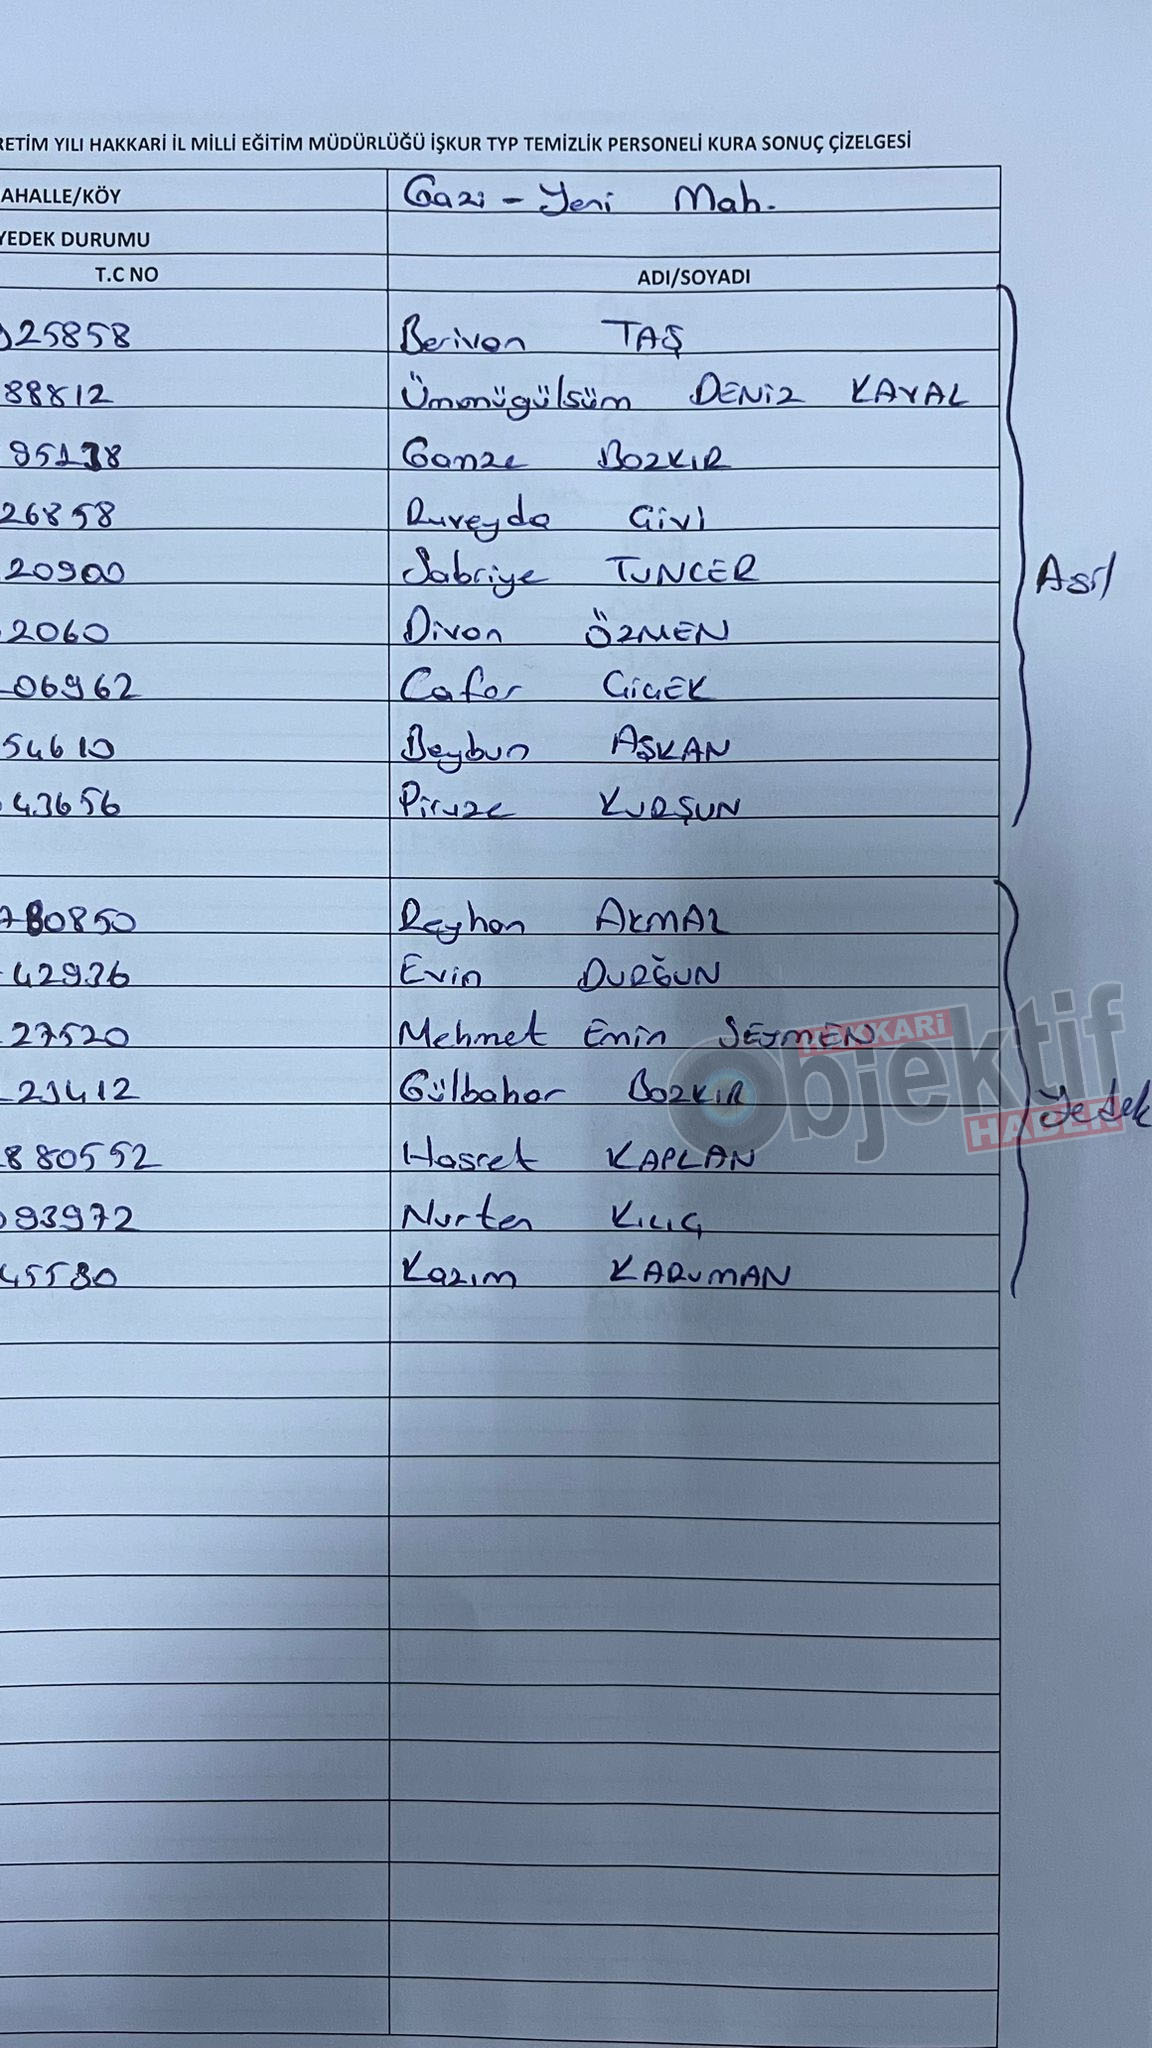 RETİM YILI HAKKARİ İL MİLLİ EĞİTİM MÜDÜRLÜĞÜ İŞKUR TYP TEMİZLİK PERSONELİ KURA SONUÇ ÇİZELGESİ
AHALLE/KÖY Gazi - Yeni Mah.
YEDEK DURUMU
T.C NO ADI/SOYADI
25858 Berivan TAŞ
88812 Ümmügülsüm DENİZ KAVAL
95138 Gamze BOZKIR
26858 Ruveyda CİVİ
20900 Sabriye TUNCER
2060 Divan ÖZMEN
06962 Cafer ÇİÇEK
54610 Beybun AŞKAN
43656 Piruze KURŞUN
Asil
780850 Reyhan AKMAZ
42936 Evin DURĞUN
27520 Mehmet Emin SEYMEN
21412 Gülbahar BOZKIR
880552 Hasret KAPLAN
93972 Nurten KILIÇ
45580 Kazım KARUMAN
Yedek
HAKKARİ
Objektif
HABER